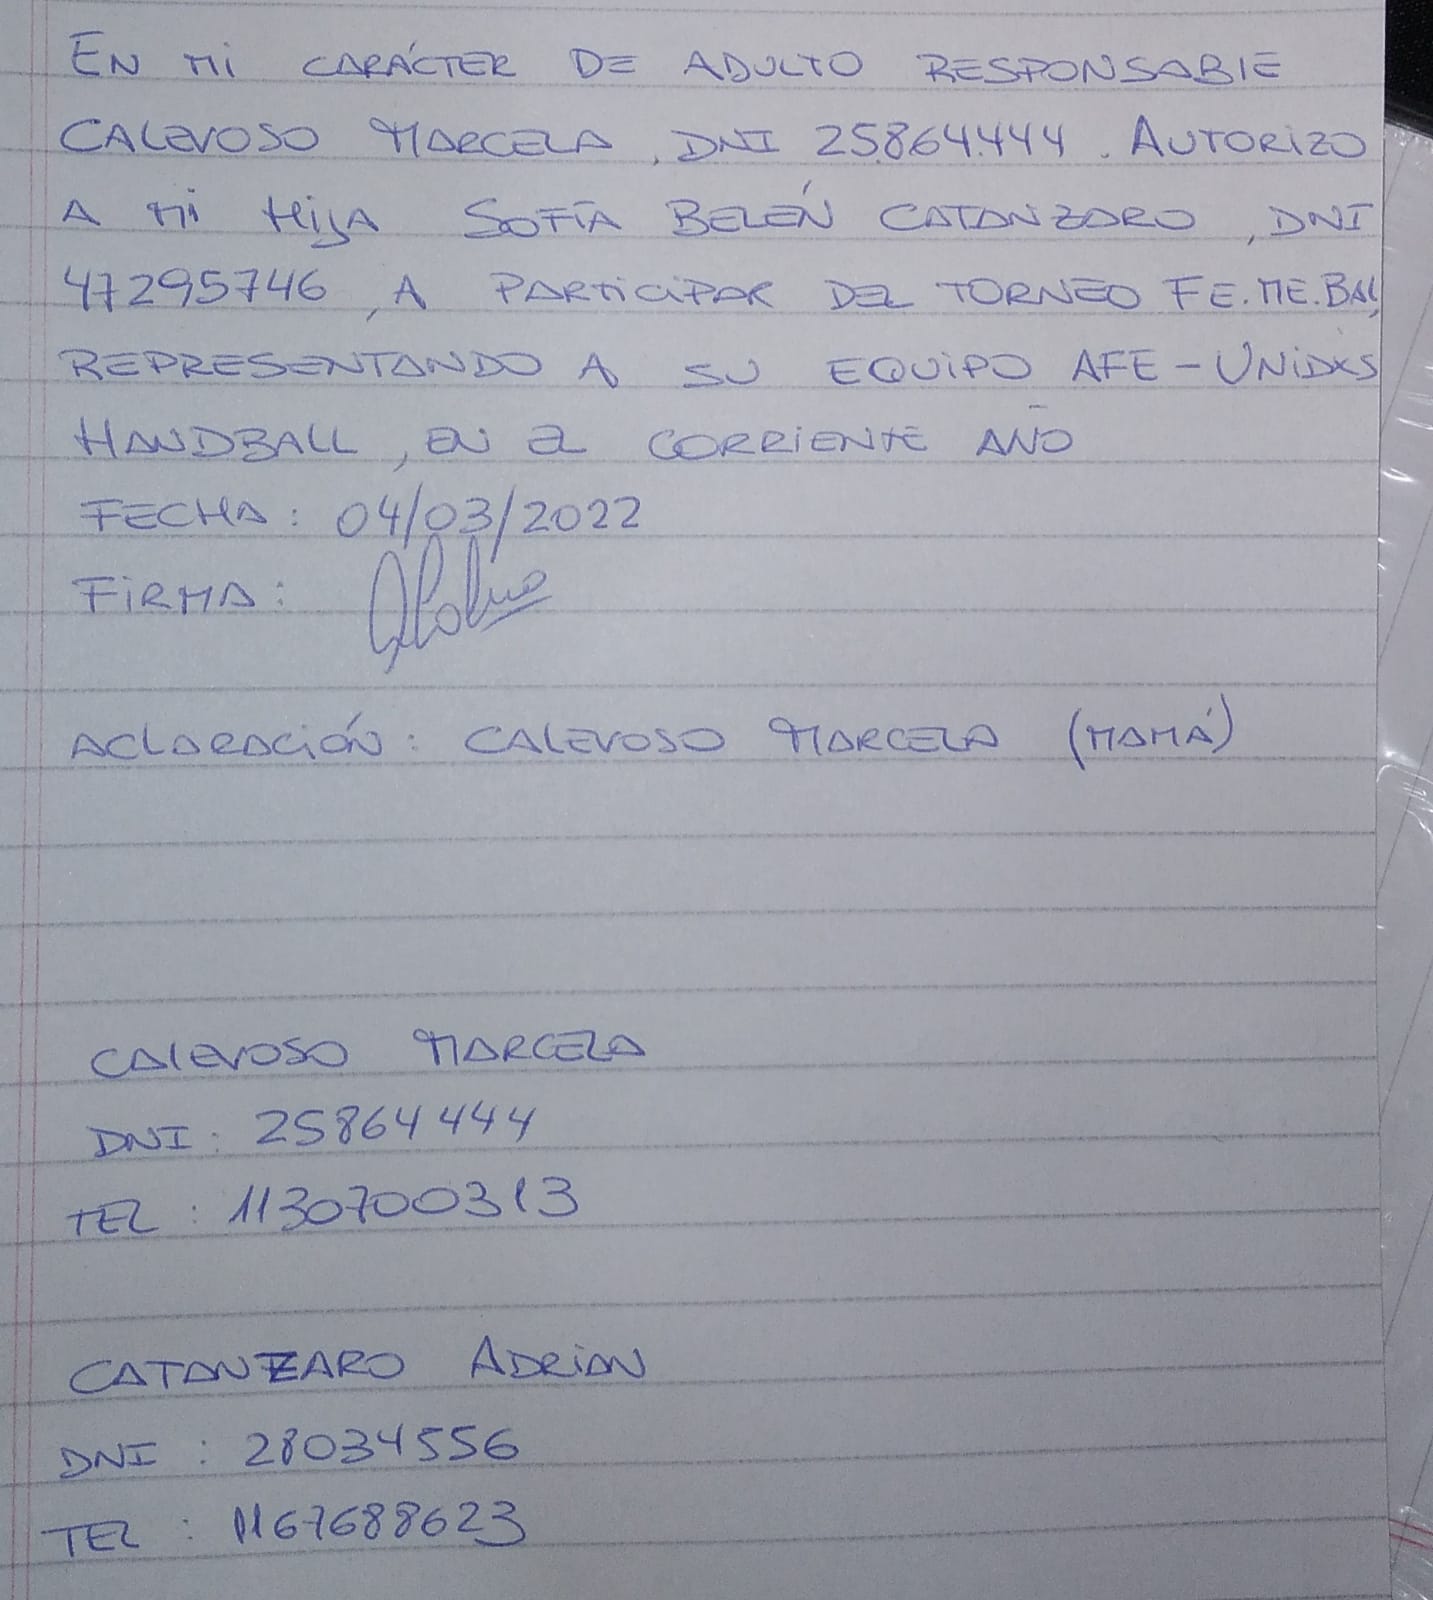 EN MI CARÁCTER DE ADULTO RESPONSABLE
CALEVOSO MARCELA, DNI 25.864.444. AUTORIZO
A MI HIJA SOFÍA BELÉN CATANZARO, DNI
47295746, A PARTICIPAR DEL TORNEO FE.ME.BAL,
REPRESENTANDO A SU EQUIPO AFE-UNIDXS
HANDBALL, EN EL CORRIENTE AÑO
FECHA: 04/03/2022
FIRMA:
ACLARACIÓN: CALEVOSO MARCELA (MAMÁ)
CALEVOSO MARCELA
DNI: 25864444
TEL: 1130700313
CATANZARO ADRIAN
DNI: 28034556
TEL: 1167688623